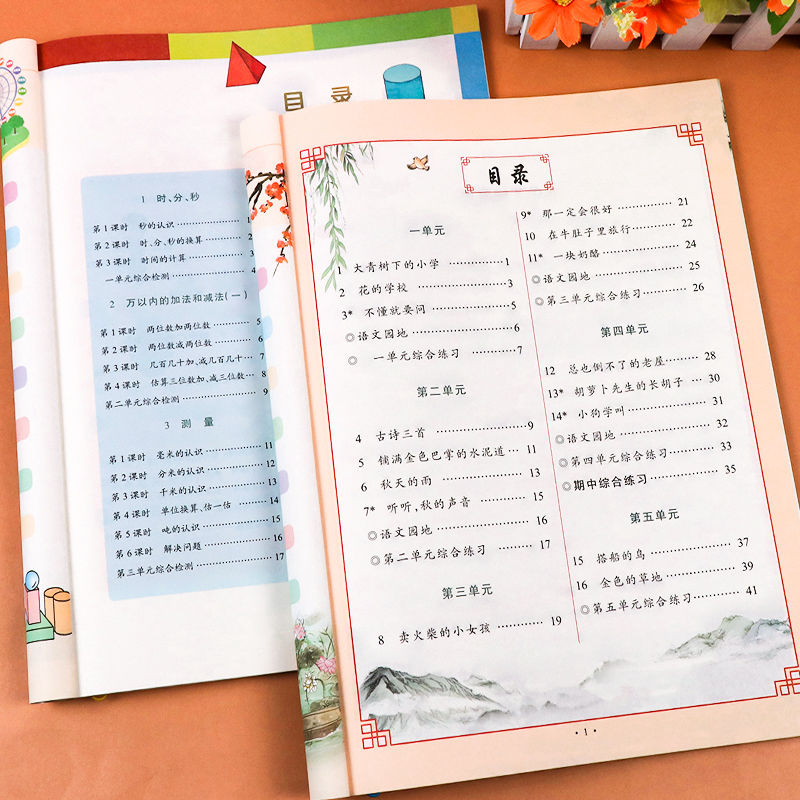 目录
1 时、分、秒
第1课时 秒的认识 1
第2课时 时、分、秒的换算 2
第3课时 时间的计算 3
一单元综合检测 4
2 万以内的加法和减法(一)
第1课时 两位数加两位数 5
第2课时 两位数减两位数 6
第3课时 几百几十加、减几百几十 7
第4课时 估算三位数加、减三位数 8
第二单元综合检测 9
3 测量
第1课时 毫米的认识 11
第2课时 分米的认识 12
第3课时 千米的认识 13
第4课时 单位换算、估一估 14
第5课时 吨的认识 15
第6课时 解决问题 16
第三单元综合检测 17
目录
一单元
1 大青树下的小学 1
2 花的学校 3
3* 不懂就要问 5
◎语文园地 6
◎ 一单元综合练习 7
第二单元
4 古诗三首 9
5 铺满金色巴掌的水泥道 11
6 秋天的雨 13
7* 听听,秋的声音 15
◎语文园地 16
◎第二单元综合练习 17
第三单元
8 卖火柴的小女孩 19
9* 那一定会很好 21
10 在牛肚子里旅行 22
11* 一块奶酪 24
◎语文园地 25
◎第三单元综合练习 26
第四单元
12 总也倒不了的老屋 28
13* 胡萝卜先生的长胡子 30
14* 小狗学叫 31
◎语文园地 32
◎第四单元综合练习 33
◎期中综合练习 35
第五单元
15 搭船的鸟 37
16 金色的草地 39
◎第五单元综合练习 41
·1·